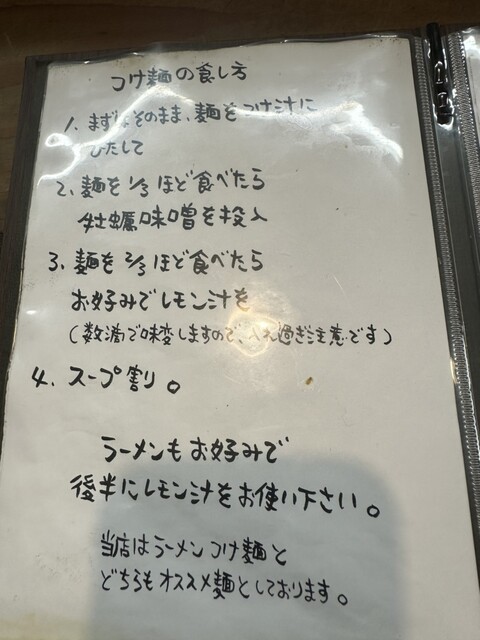 つけ麺の食し方
1. まずはそのまま、麺をつけ汁に
ひたして
2. 麺を1/3ほど食べたら
牡蠣味噌を投入
3. 麺を2/3ほど食べたら
お好みでレモン汁を
(数滴で味変しますので、入れ過ぎ注意です)
4. スープ割り。
ラーメンもお好みで
後半にレモン汁をお使い下さい。
当店はラーメンつけ麺と
どちらもオススメ麺としております。